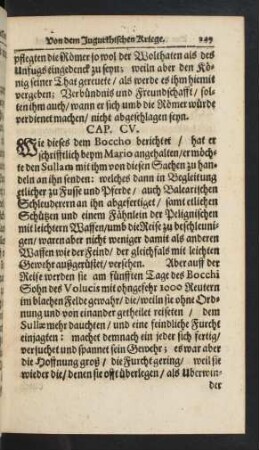 Von dem Jugurthischen Kriege. 249
pflegten die Römer so wol der Wolthaten als des
Unfugs eingedenck zu seyn; weiln aber den Kö-
nig seiner That gereuete / als werde es ihm hiemit
vergeben: Verbündnis und Freundschafft / sol-
ten ihm auch / wann er sich umb die Römer würde
verdienet machen / nicht abgeschlagen seyn.
CAP. CV.
Wie dieses dem Boccho berichtet / hat er
schrifftlich beym Mario angehalten / er möch-
te den Sullam mit ihm von diesen Sachen zu han-
deln an ihn senden: welches dann in Begleitung
etlicher zu Fusse und Pferde / auch Balearischen
Schleuderern an ihn abgefertiget / samt etlichen
Schützen und einem Fähnlein der Pelignischen
mit leichtern Waffen / umb die Reise zu beschleuni-
gen / waren aber nicht weniger damit als anderen
Waffen wie der Feind / der gleichfals mit leichten
Gewehr außgerüstet / versehen. Aber auff der
Reise werden sie am fünfften Tage des Bocchi
Sohn des Volucis mit ohngefehr 1000 Reutern
im blachen Felde gewahr / die / weiln sie ohne Ord-
nung und von einander getheilet reiseten / dem
Sullæ mehr dauchten / und eine feindliche Furcht
einjagten: machet demnach ein jeder sich fertig /
versuchet und spannet sein Gewehr; es war aber
die Hoffnung groß / die Furcht gering / weil sie
wieder die / denen sie offt überlegen / als Uberwin-
der